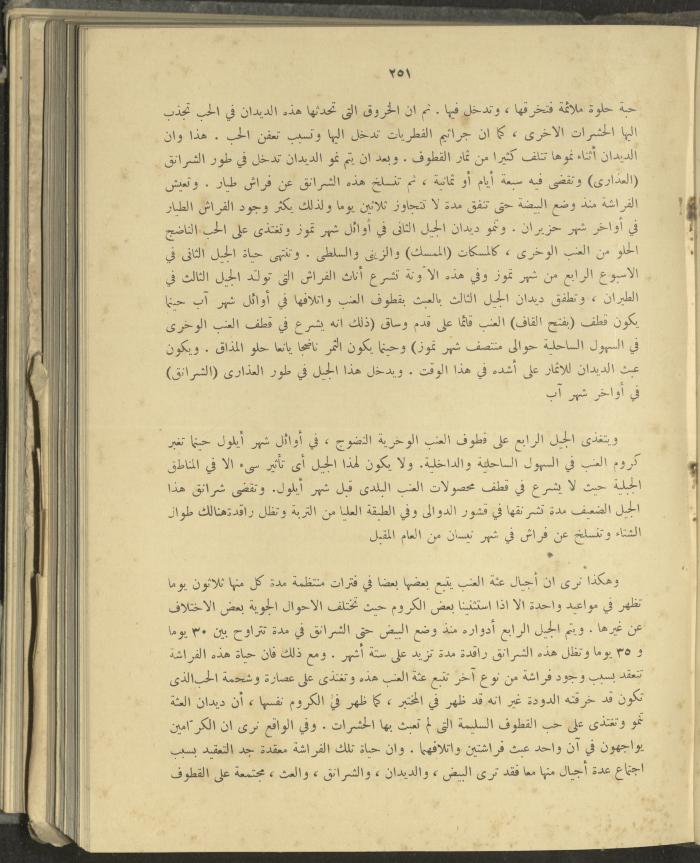 ٢٥١
حبة حلوة ملائمة فتخرقها ، وتدخل فيها . ثم ان الخروق التى تحدثها هذه الديدان في الحب تجذب
اليها الحشرات الاخرى ، كما ان جراثيم الفطريات تدخل اليها وتسبب تعفن الحب . هذا وان
الديدان أثناء نموها تتلف كثيرا من ثمار القطوف . وبعد ان يتم نمو الديدان تدخل في طور الشرانق
(العذارى) وتقضى فيه سبعة أيام أو ثمانية ، ثم تنسلخ هذه الشرانق عن فراش طيار . وتعيش
الفراشة منذ وضع البيضة حتى تنفق مدة لا تتجاوز ثلاثين يوما ولذلك يكثر وجود الفراش الطيار
في أواخر شهر حزيران . وتنمو ديدان الجيل الثانى في أوائل شهر تموز وتغتذى على الحب الناضج
الحلو من العنب الوخرى ، كالمسكات (الممسك) والزينى والسلطى . وتنتهى حياة الجيل الثانى في
الاسبوع الرابع من شهر تموز وفي هذه الآونة تشرع أناث الفراش التى تولد الجيل الثالث في
الطيران ، وتطفق ديدان الجيل الثالث بالعبث بقطوف العنب واتلافها في أوائل شهر آب حينما
يكون قطف (بفتح القاف) العنب قائما على قدم وساق (ذلك انه يشرع في قطف العنب الوخرى
في السهول الساحلية حوالى منتصف شهر تموز) وحينما يكون الثمر ناضجا يانعا حلو المذاق . ويكون
عبث الديدان للاثمار على أشده في هذا الوقت . ويدخل هذا الجيل في طور العذارى (الشرانق)
في أواخر شهر آب
ويتغذى الجيل الرابع على قطوف العنب الوخرية النضوج ، في أوائل شهر أيلول حينما تغبر
كروم العنب في السهول الساحلية والداخلية. ولا يكون لهذا الجيل أى تأثير سىء الا في المناطق
الجبلية حيث لا يشرع في قطف محصولات العنب البلدى قبل شهر أيلول. وتقضى شرانق هذا
الجيل الضعيف مدة تشرنقها في قشور الدوالى وفي الطبقة العليا من التربة وتظل راقدة هنالك طوال
الشتاء وتنسلخ عن فراش في شهر نيسان من العام المقبل
وهكذا نرى ان أجيال عثة العنب يتبع بعضها بعضا في فترات منتظمة مدة كل منها ثلاثون يوما
تظهر في مواعيد واحدة الا اذا استثنينا بعض الكروم حيث تختلف الاحوال الجوية بعض الاختلاف
عن غيرها . ويتم الجيل الرابع أدواره منذ وضع البيض حتى الشرانق في مدة تتراوح بين ٣٠ يوما
و ٣٥ يوما وتظل هذه الشرانق راقدة مدة تزيد على ستة أشهر . ومع ذلك فان حياة هذه الفراشة
تتعقد بسبب وجود فراشة من نوع آخر تتبع عثة العنب هذه وتغتذى على عصارة وشحمة الحب الذى
تكون قد خرقته الدودة غير انه قد ظهر في المختبر ، كما ظهر في الكروم نفسها ، أن ديدان العثة
تنمو وتغتذى على حب القطوف السليمة التى لم تعبث بها الحشرات . وفي الواقع نرى ان الكرّامين
يواجهون في آن واحد عبث فراشتين واتلافهما . وان حياة تلك الفراشة معقدة جد التعقيد بسبب
اجتماع عدة أجيال منها معا فقد ترى البيض ، والديدان ، والشرانق ، والعث ، مجتمعة على القطوف